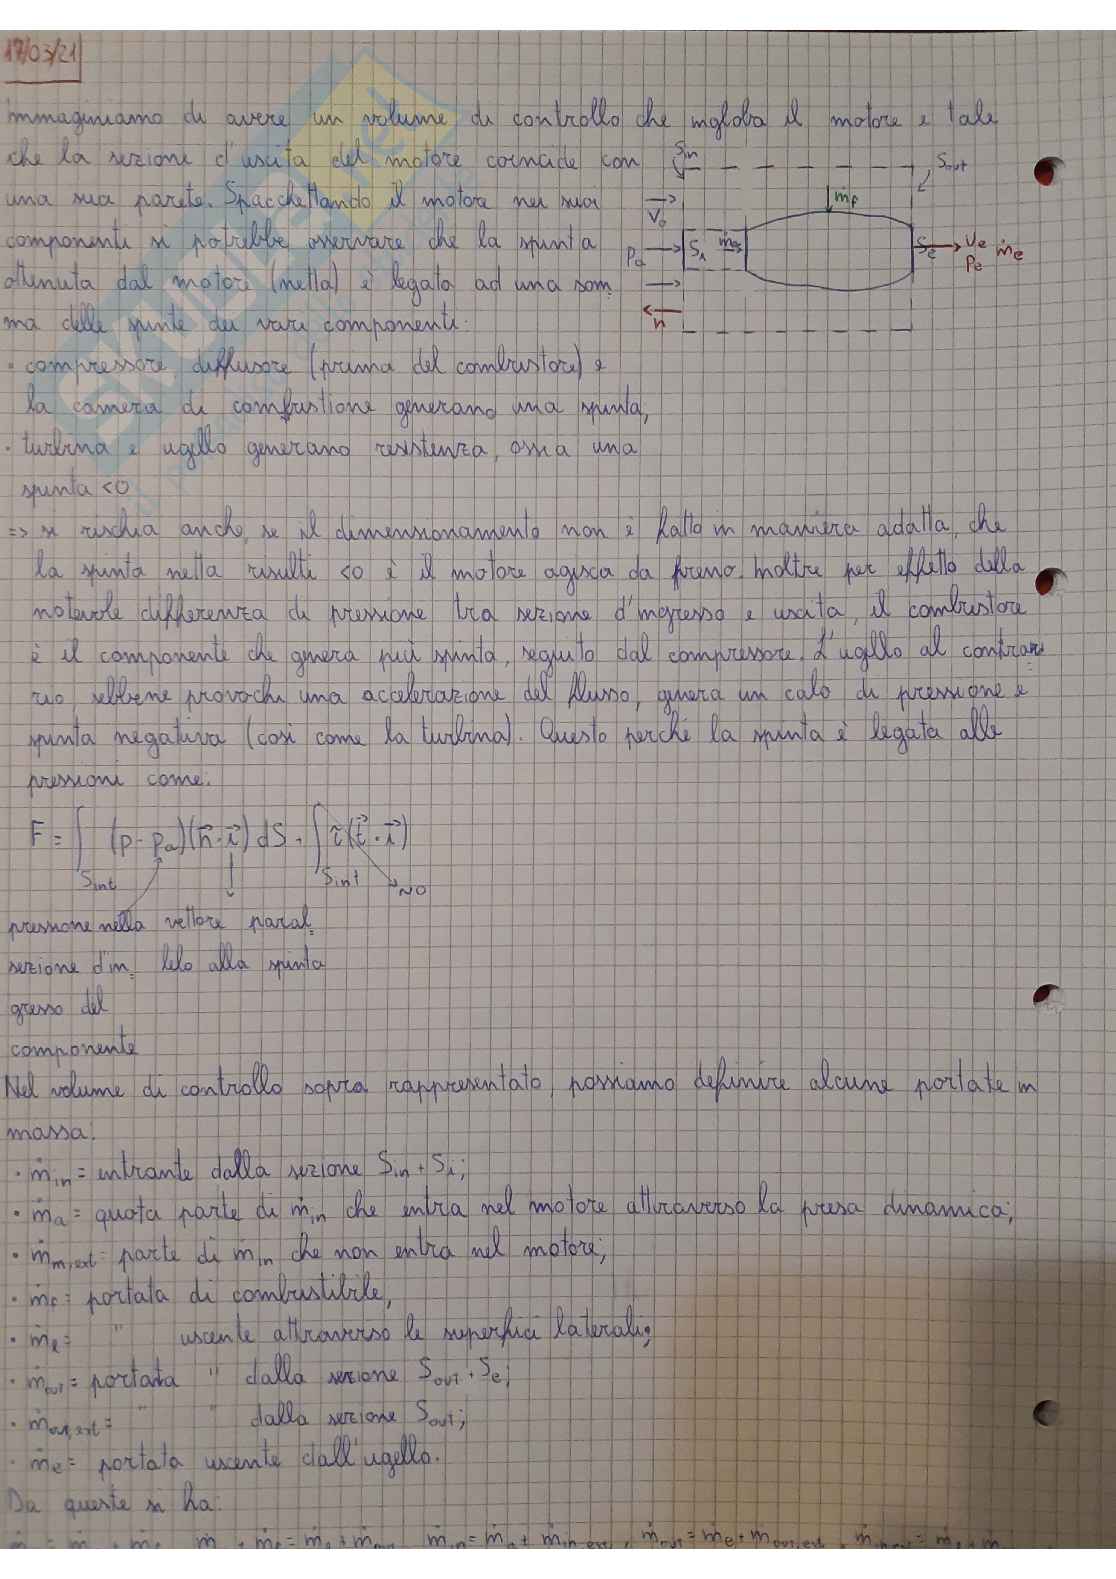 17/03/21
immaginiamo di avere un volume di controllo che ingloba il motore e tale
che la sezione d'uscita del motore coincide con
una sua parete. Spacchettando il motore nei suoi
componenti si potrebbe osservare che la spunta
ottenuta dal motore (netta) è legata ad una som
ma delle spinte dei vari componenti:
· compressore, diffusore (prima del combustore) e
la camera di combustione generano una spinta,
· turbina e ugello generano resistenza, ossia una
spinta <0
Sin
Sout
ṁf
V0
Pa
Si
ṁa
Se
ue
Pe
ṁe
n
=> si rischia anche, se il dimensionamento non è fatto in maniera adatta, che
la spinta netta risulti <0 e il motore agisca da freno. Inoltre per effetto della
notevole differenza di pressione tra sezione d'ingresso e uscita, il combustore
è il componente che genera più spinta, seguito dal compressore. L'ugello al contra
rio, sebbene provochi una accelerazione del flusso, genera un calo di pressione e
spinta negativa (così come la turbina). Questo perché la spinta è legata alle
pressioni come:
F = ∫Sint (p - pa)(n⃗·i⃗) dS + ∫Sint τ(t⃗·i⃗)
NO
pressione nella vettore paral
sezione d'in lelo alla spinta
gresso del
componente
Nel volume di controllo sopra rappresentato, possiamo definire alcune portate in
massa:
· ṁin = entrante dalla sezione Sin + Si;
· ṁa = quota parte di ṁin che entra nel motore attraverso la presa dinamica;
· ṁin,ext = parte di ṁin che non entra nel motore;
· ṁf = portata di combustibile,
· ṁl = " uscente attraverso le superfici laterali;
· ṁout = portata " dalla sezione Sout + Se;
· ṁout,ext = " " dalla sezione Sout;
· ṁe = portata uscente dall'ugello.
Da queste si ha: